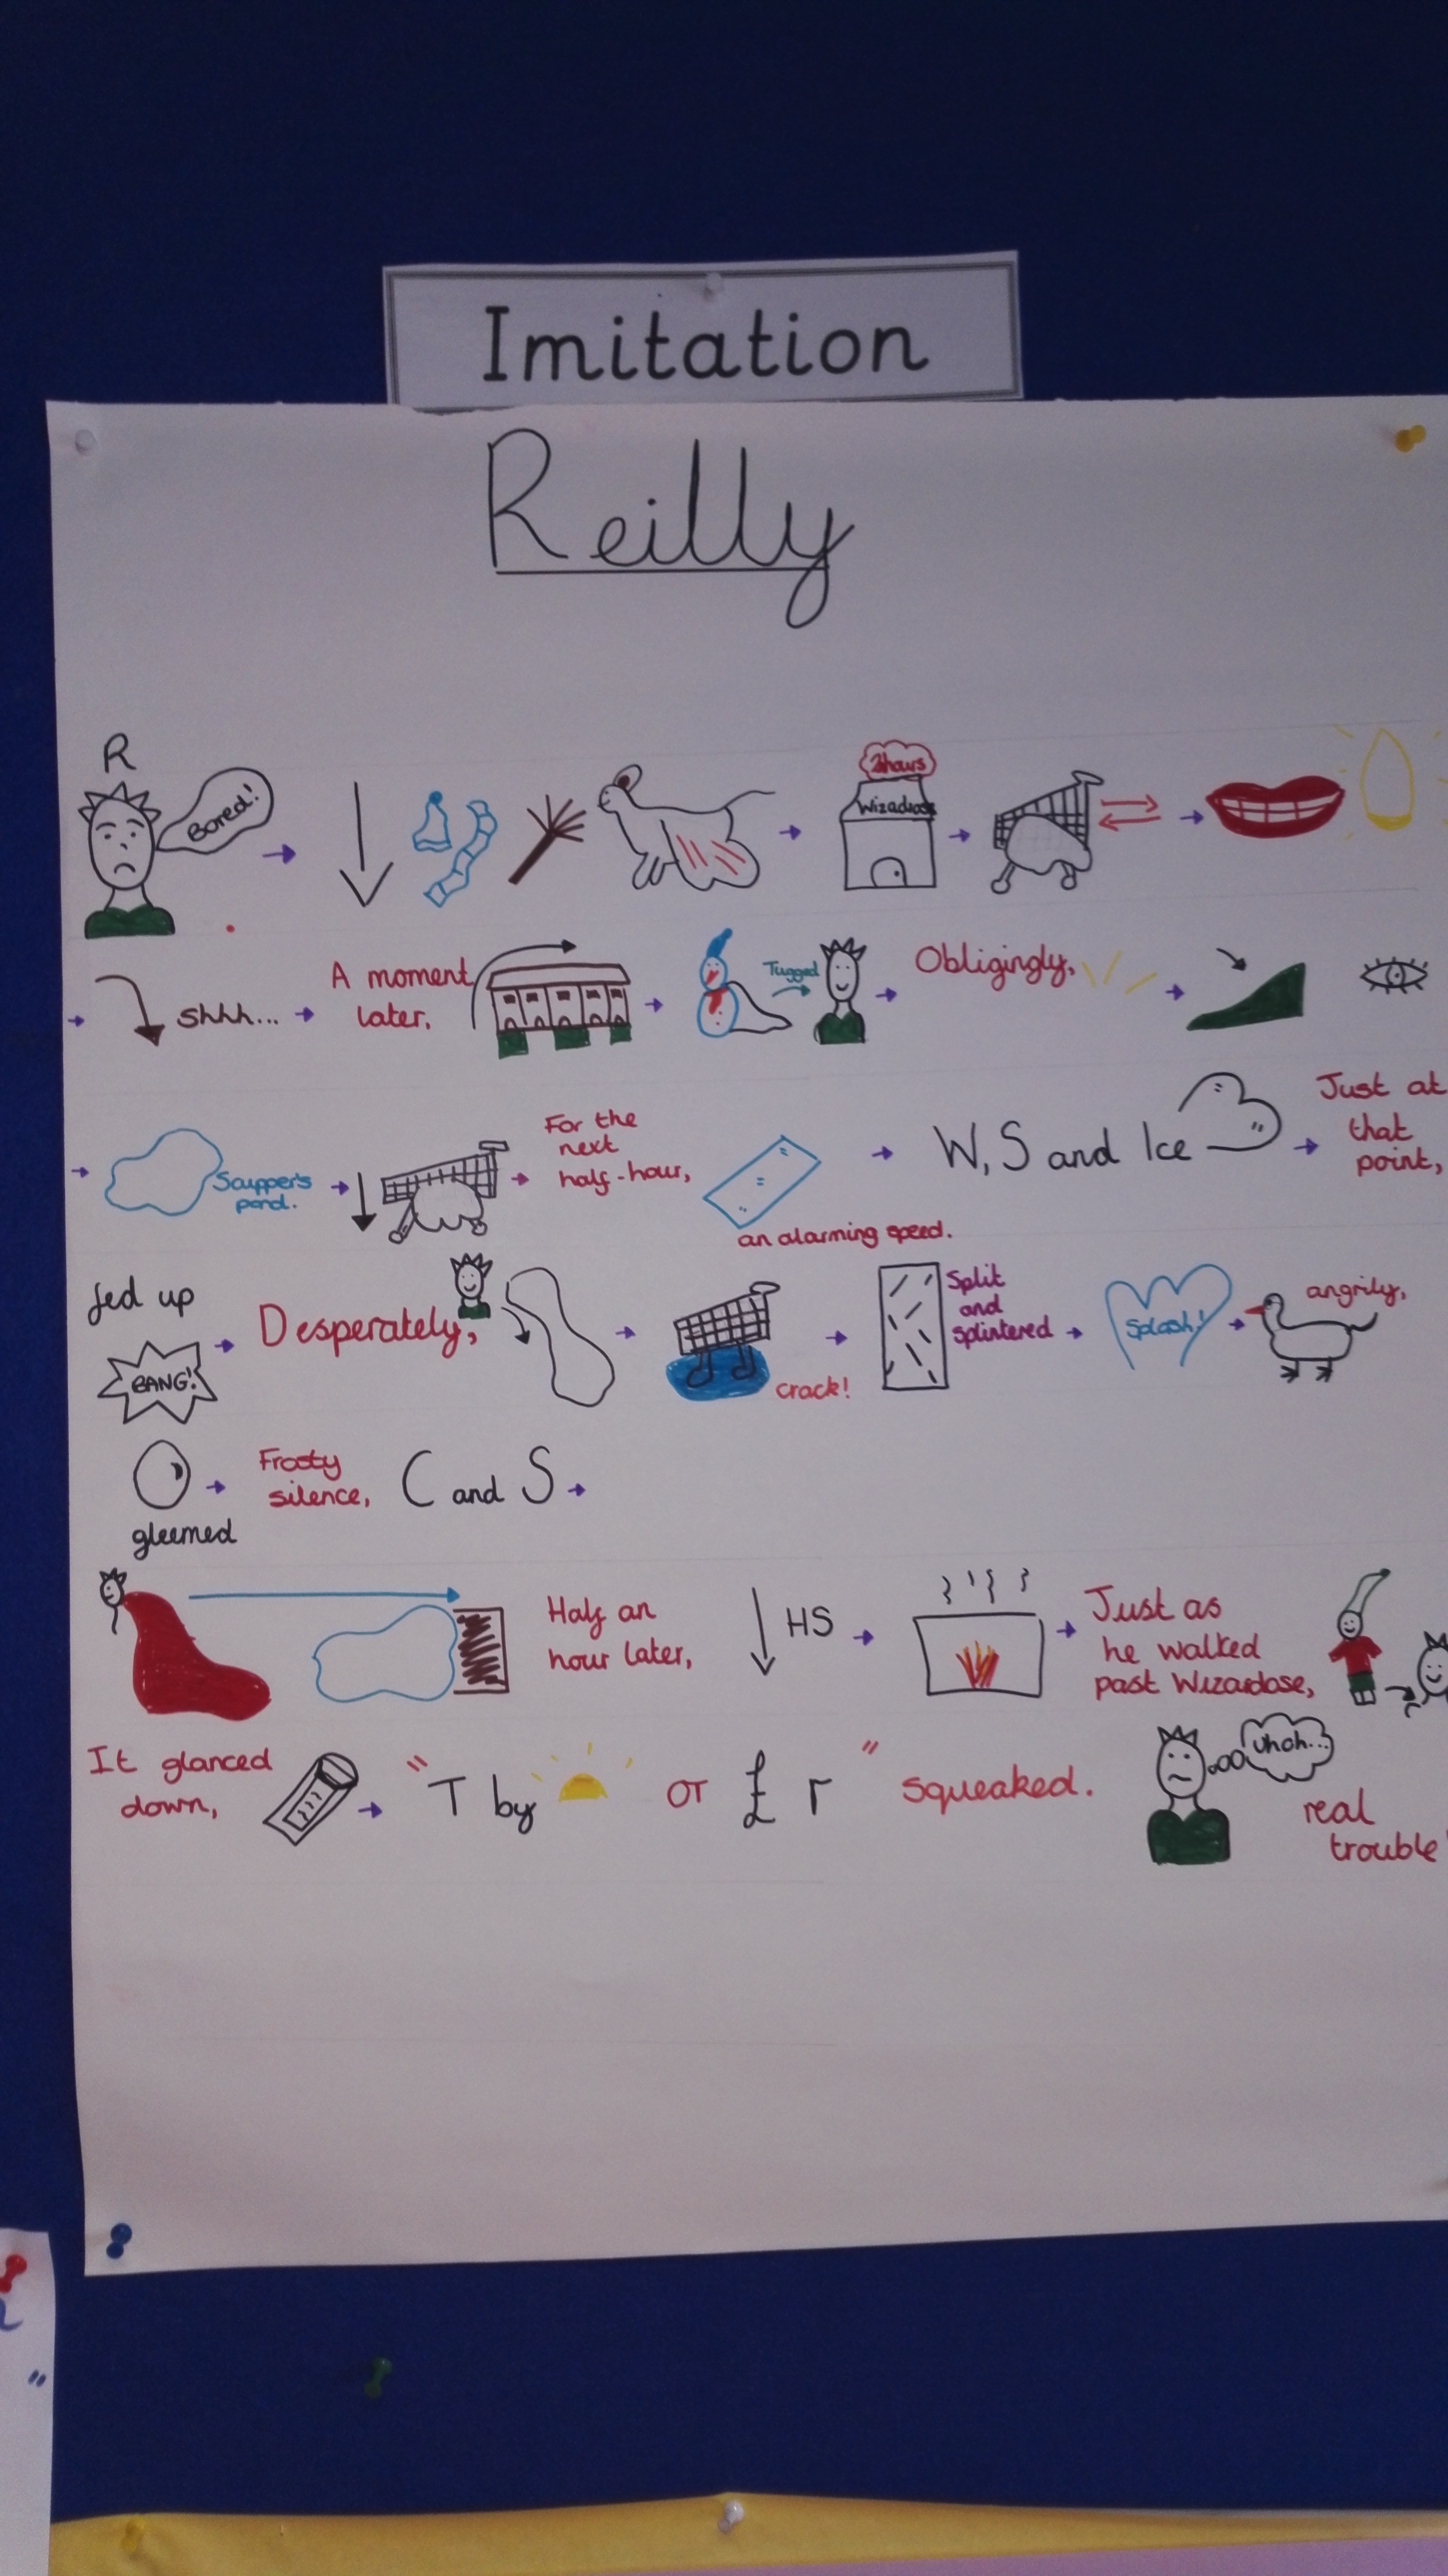 Imitation
Reilly
R
Bored!
2hours
Wizadrose
shhh...
A moment
later,
Tugged
Obligingly,
Scupper's
pond.
For the
next
half-hour,
an alarming speed.
W, S and Ice
Just at
that
point,
fed up
BANG!
Desperately,
crack!
Split
and
splintered
Splash!
angrily,
gleemed
Frosty
silence,
C and S
Half an
hour later,
HS
Just as
he walked
past Wizardose,
It glanced
down,
"T by or £ r" squeaked.
Uhoh...
real
trouble